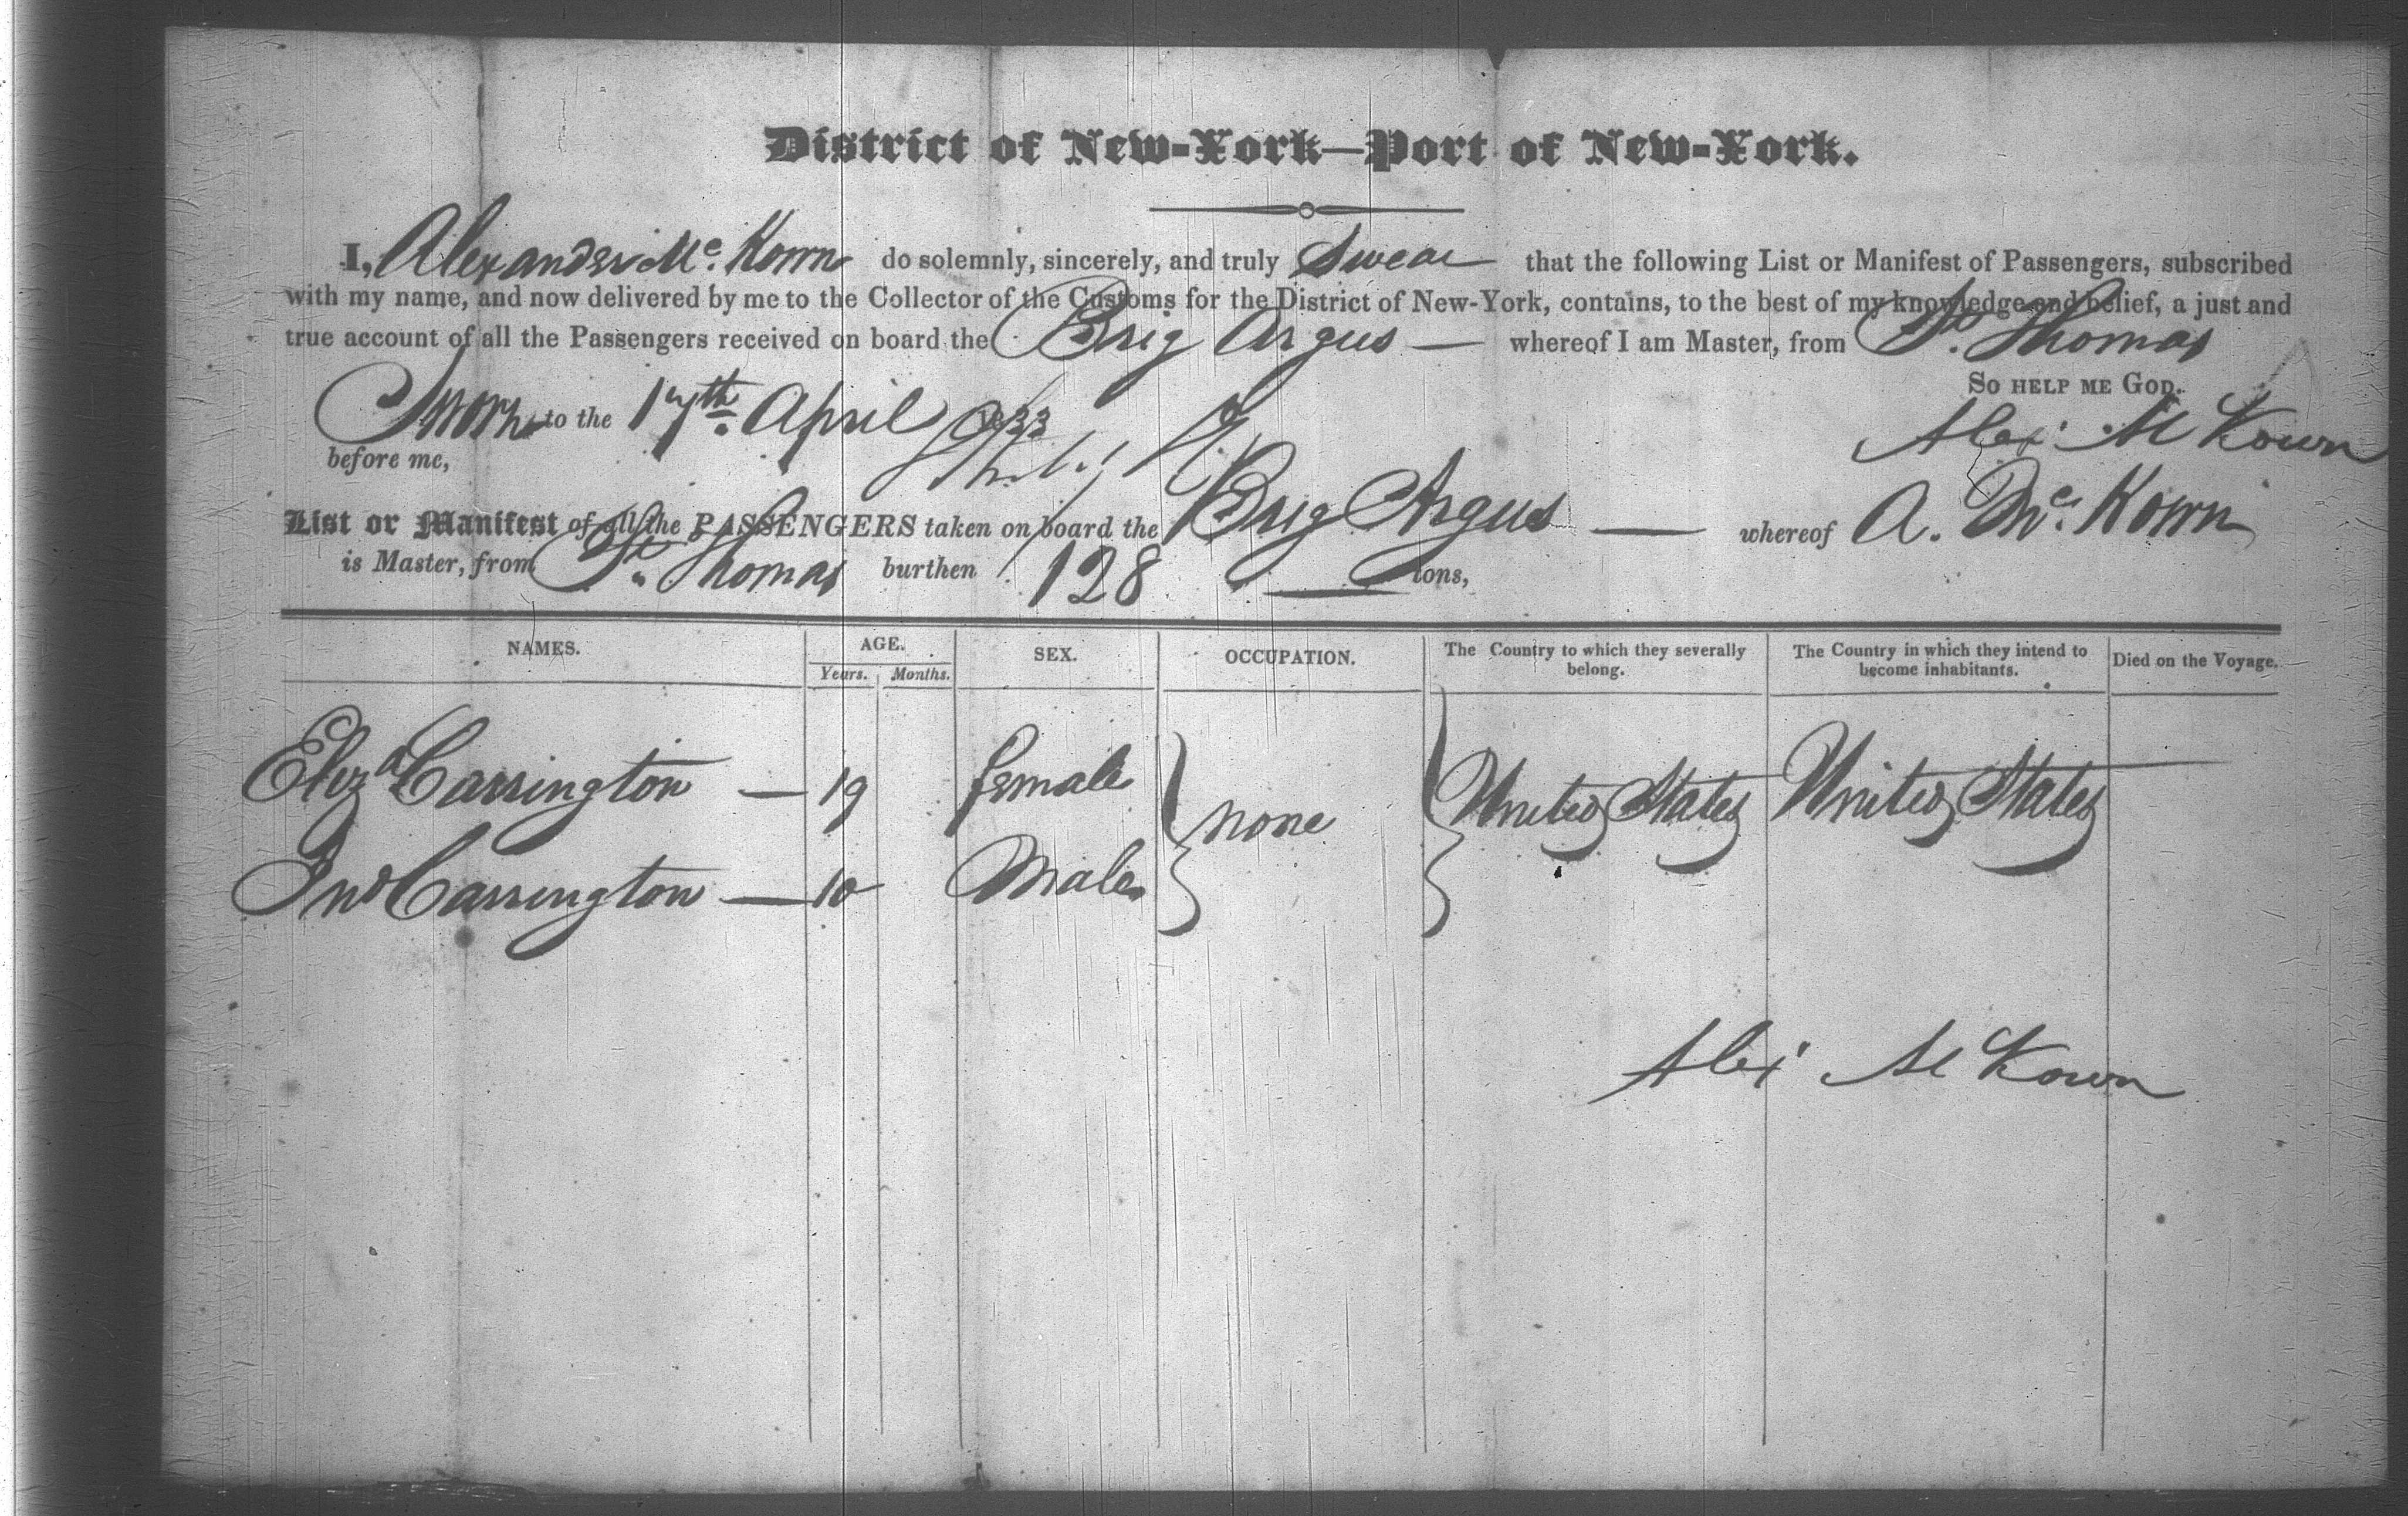 District of New-York—Port of New-York.
I, Alexander Mc. Kown do solemnly, sincerely, and truly Swear that the following List or Manifest of Passengers, subscribed
with my name, and now delivered by me to the Collector of the Customs for the District of New-York, contains, to the best of my knowledge and belief, a just and
true account of all the Passengers received on board the Brig Argus — whereof I am Master, from St. Thomas
So HELP ME GOD.
Sworn to the 17th April 1833
Alex McKown
before me,
List or Manifest of all the PASSENGERS taken on board the Brig Argus — whereof A. Mc. Kown
is Master, from St. Thomas burthen 128 tons,
NAMES. AGE. SEX. OCCUPATION. The Country to which they severally belong. The Country in which they intend to become inhabitants. Died on the Voyage.
Years. Months.
Eliza Carrington — 19 female none United States United States
Jno Carrington — 10 Male
Alex McKown